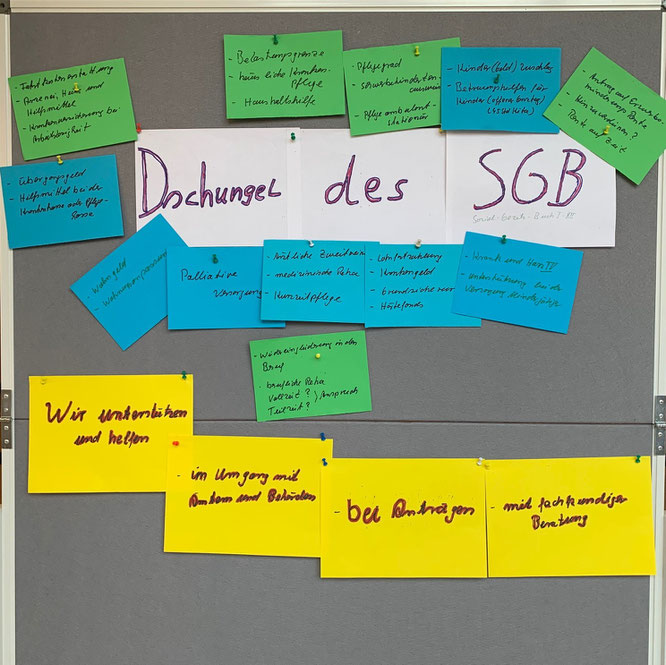 - Fahrtkostenerstattung
- Arznei, Heil und
Hilfsmittel
- Krankenversicherung bei
Arbeitslosigkeit
- Belastungsgrenze
- häusliche Kranken-
Pflege
- Haushaltshilfe
- Pflegegrad
- Pflege ambulant
stationär
- Kinder(Geld)zuschlag
- Betreuungshilfen für
Kinder
- Antrag auf Erwerbs-
minderungs Rente
- Rente auf Zeit
- Übergangsgeld
- Hilfsmittel bei der
Krankenkasse oder Pflege-
kasse
Dschungel des SGB
Sozial-Gesetz-Buch I-XII
- Wohngeld
Palliative
Versorgung
- Ärztliche Zweitmeinung
- medizinische Reha
- Kurzzeitpflege
- Lohnfortzahlung
- Krankengeld
- Grundsicherung
- Härtefonds
- Krank und Hartz IV
- Unterstützung bei der
Versorgung
- Wiedereingliederung in den
Beruf
- berufliche Reha
Vollzeit? } Anspruch
Teilzeit?
Wir unterstützen
und helfen
- im Umgang mit
Ämtern und Behörden
- bei Anträgen
- mit fachkundiger
Beratung